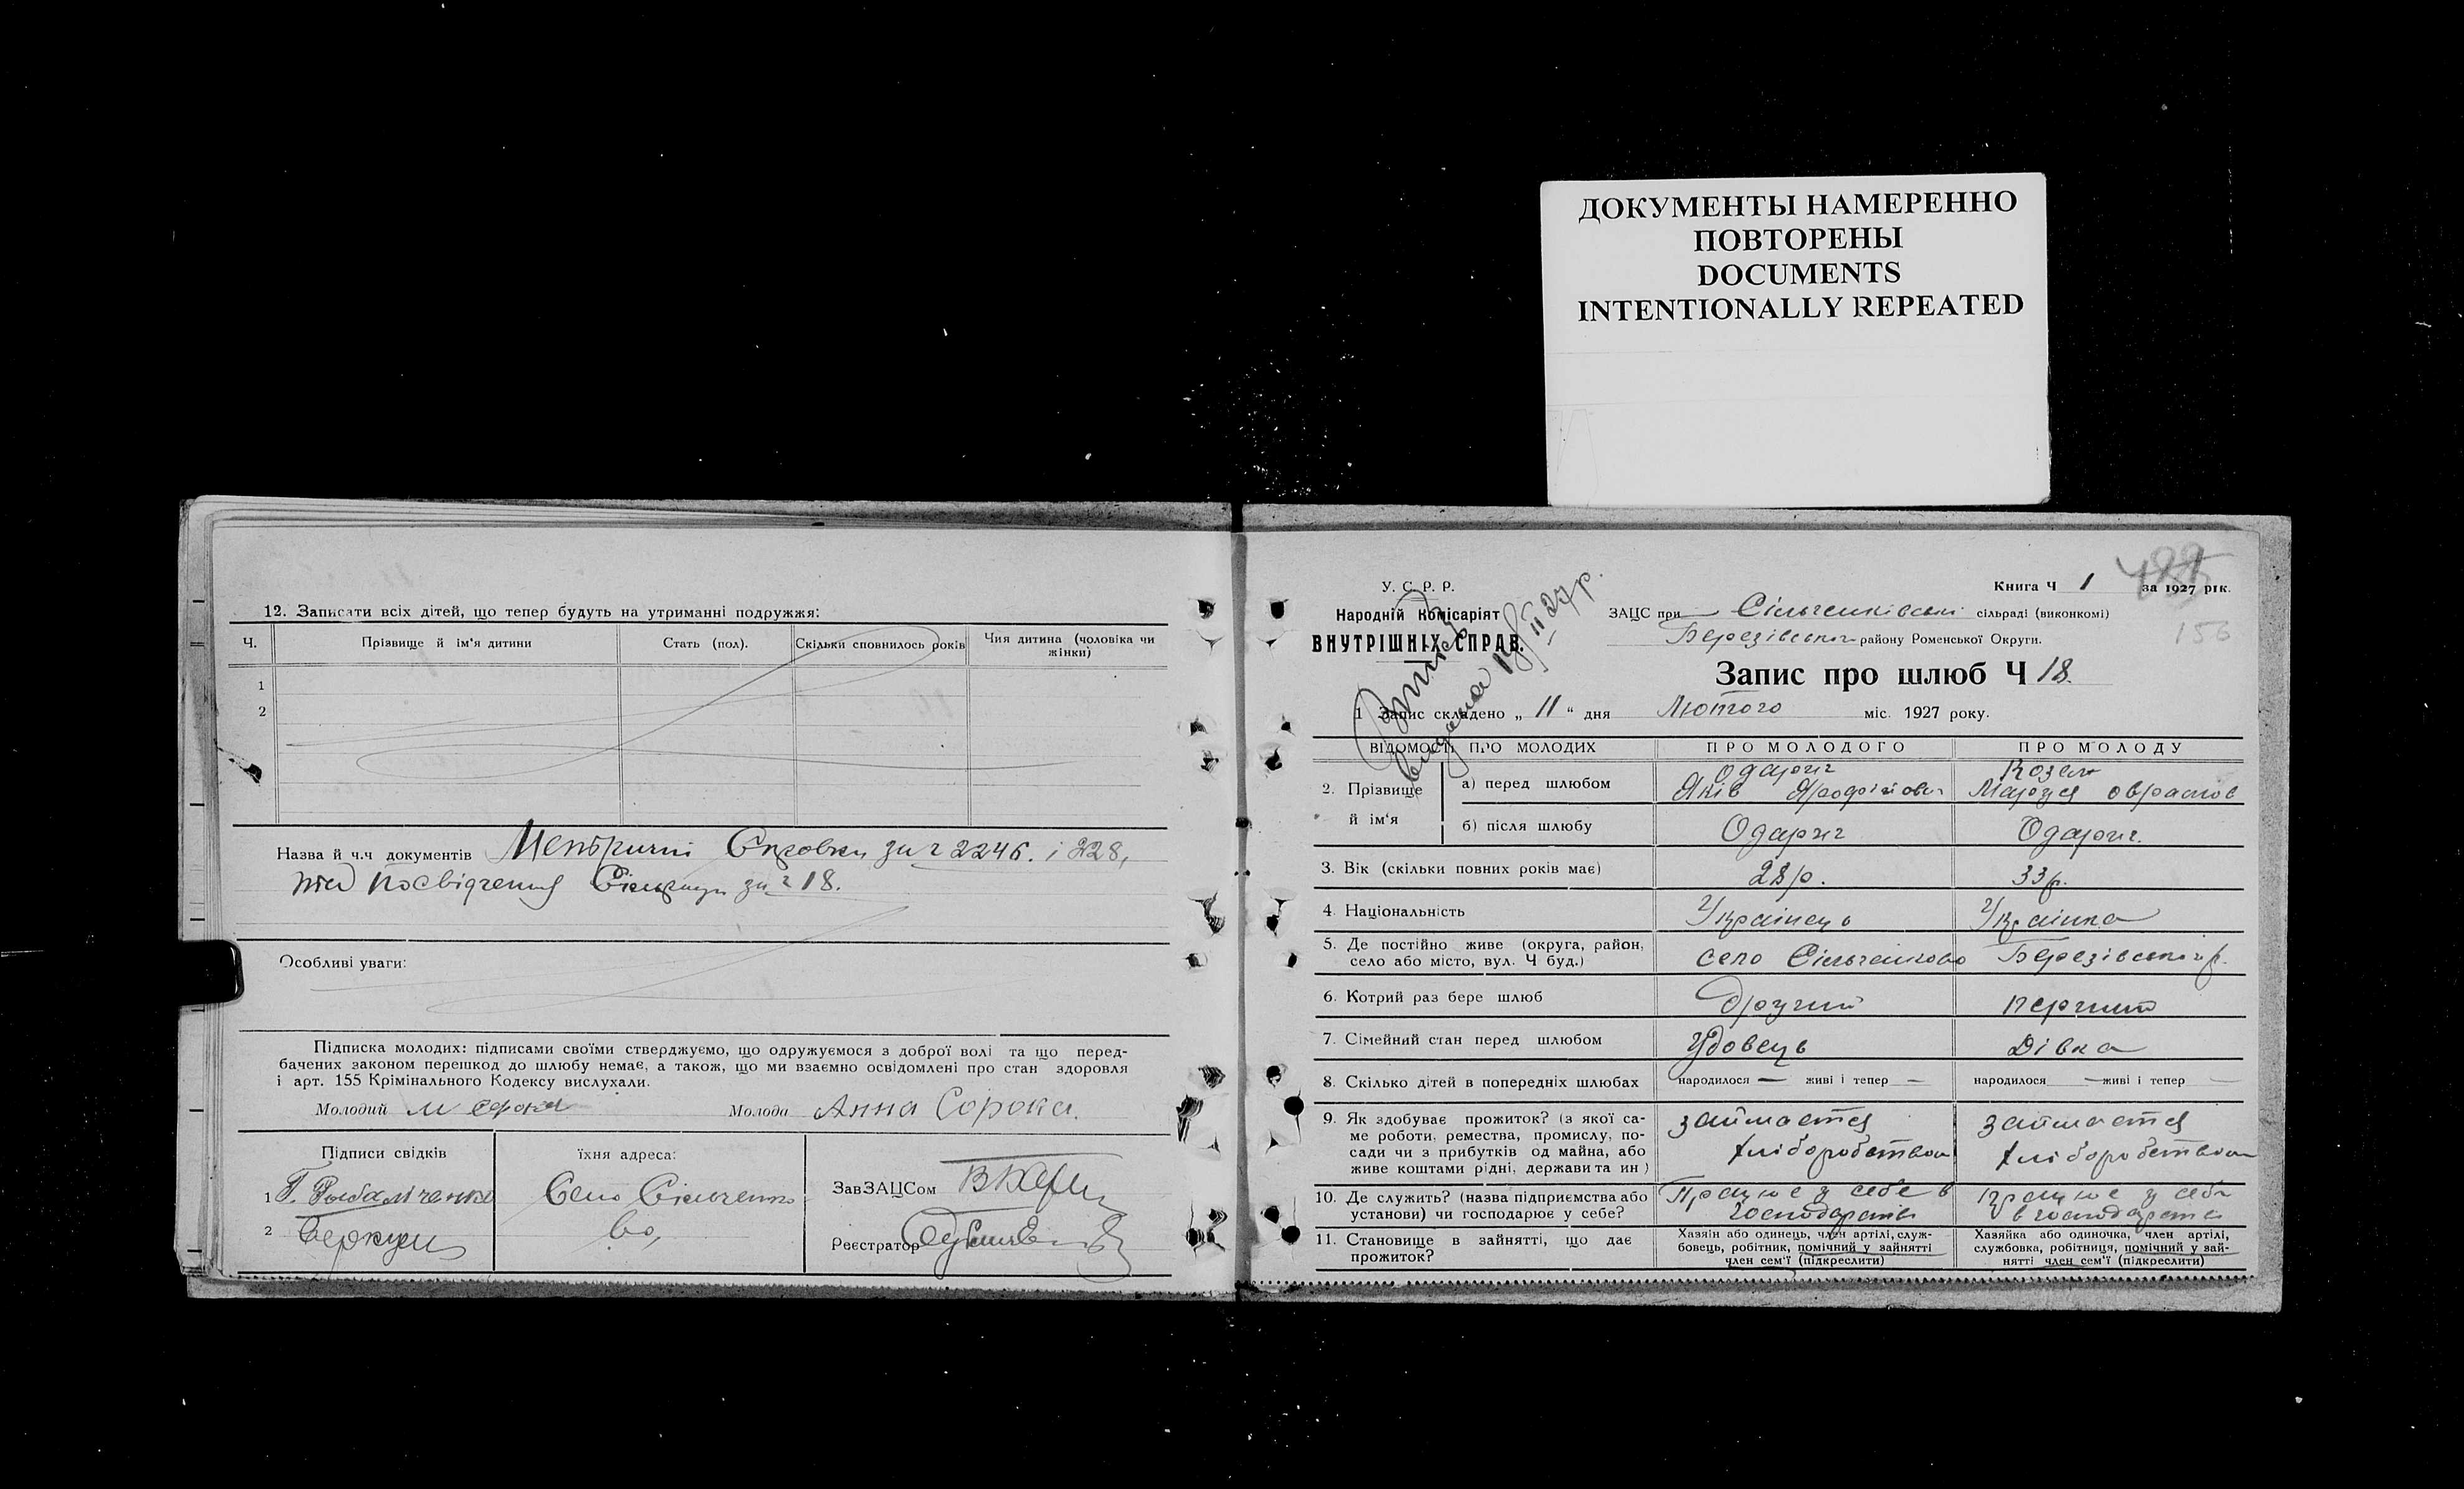 ДОКУМЕНТЫ НАМЕРЕННО
ПОВТОРЕНЫ
DOCUMENTS
INTENTIONALLY REPEATED
12. Записати всіх дітей, що тепер будуть на утриманні подружжя:
Ч.
Прізвище й ім'я дитини
Стать (пол).
Скільки сповнилось років
Чия дитина (чоловіка чи жінки)
1
2
Назва й ч.ч документів Метричні Справки за ч 2246. і 228,
посвідчення Сільради за ч 18.
Особливі уваги:
Підписка молодих: підписами своїми стверджуємо, що одружуємося з доброї волі та що перед-
бачених законом перешкод до шлюбу немає, а також, що ми взаємно освідомлені про стан здоровля
і арт. 155 Крімінального Кодексу вислухали.
Молодий М Сорока Молода Анна Сорока.
Підписи свідків
їхня адреса:
1 Г. Рыбальченко Село Сільченко
2 Беркун во,
ЗавЗАЦСом
Реєстратор
У. С. Р. Р.
Народній Комісаріят
ВНУТРІШНІХ СПРАВ.
Витяг
видана 11/II 27 р.
Книга Ч 1 за 1927 рік.
156
ЗАЦС при Сільченківські сільраді (виконкомі)
Березівського району Роменської Округи.
Запис про шлюб Ч 18.
1 Запис складено „ 11 " дня Лютого міс. 1927 року.
ВІДОМОСТІ ПРО МОЛОДИХ
ПРО МОЛОДОГО
ПРО МОЛОДУ
2. Прізвище й ім'я
а) перед шлюбом
Яків
Козел
Маруся
б) після шлюбу
3. Вік (скільки повних років має) 28 р. 33 р.
4. Національність Українець Українка
5. Де постійно живе (округа, район,
село або місто, вул. Ч буд.)
село Сільченково Березівського р.
6. Котрий раз бере шлюб Другий перший
7. Сімейний стан перед шлюбом Удовець Дівка
8. Скілько дітей в попередніх шлюбах народилося — живі і тепер — народилося — живі і тепер —
9. Як здобуває прожиток? (з якої са-
ме роботи, ремества, промислу, по-
сади чи з прибутків од майна, або
живе коштами рідні, держави та ин)
займается
хліборобством
займается
хліборобством
10. Де служить? (назва підприємства або
установи) чи господарює у себе?
Працює у себе в
господарстві
працює у себе
в господарстві
11. Становище в зайнятті, що дає
прожиток?
Хазяін або одинець, член артілі, служ-
бовець, робітник, помічний у зайнятті
член сем'ї (підкреслити)
Хазяйка або одиночка, член артілі,
службовка, робітниця, помічний у зай-
нятті член сем'ї (підкреслити)